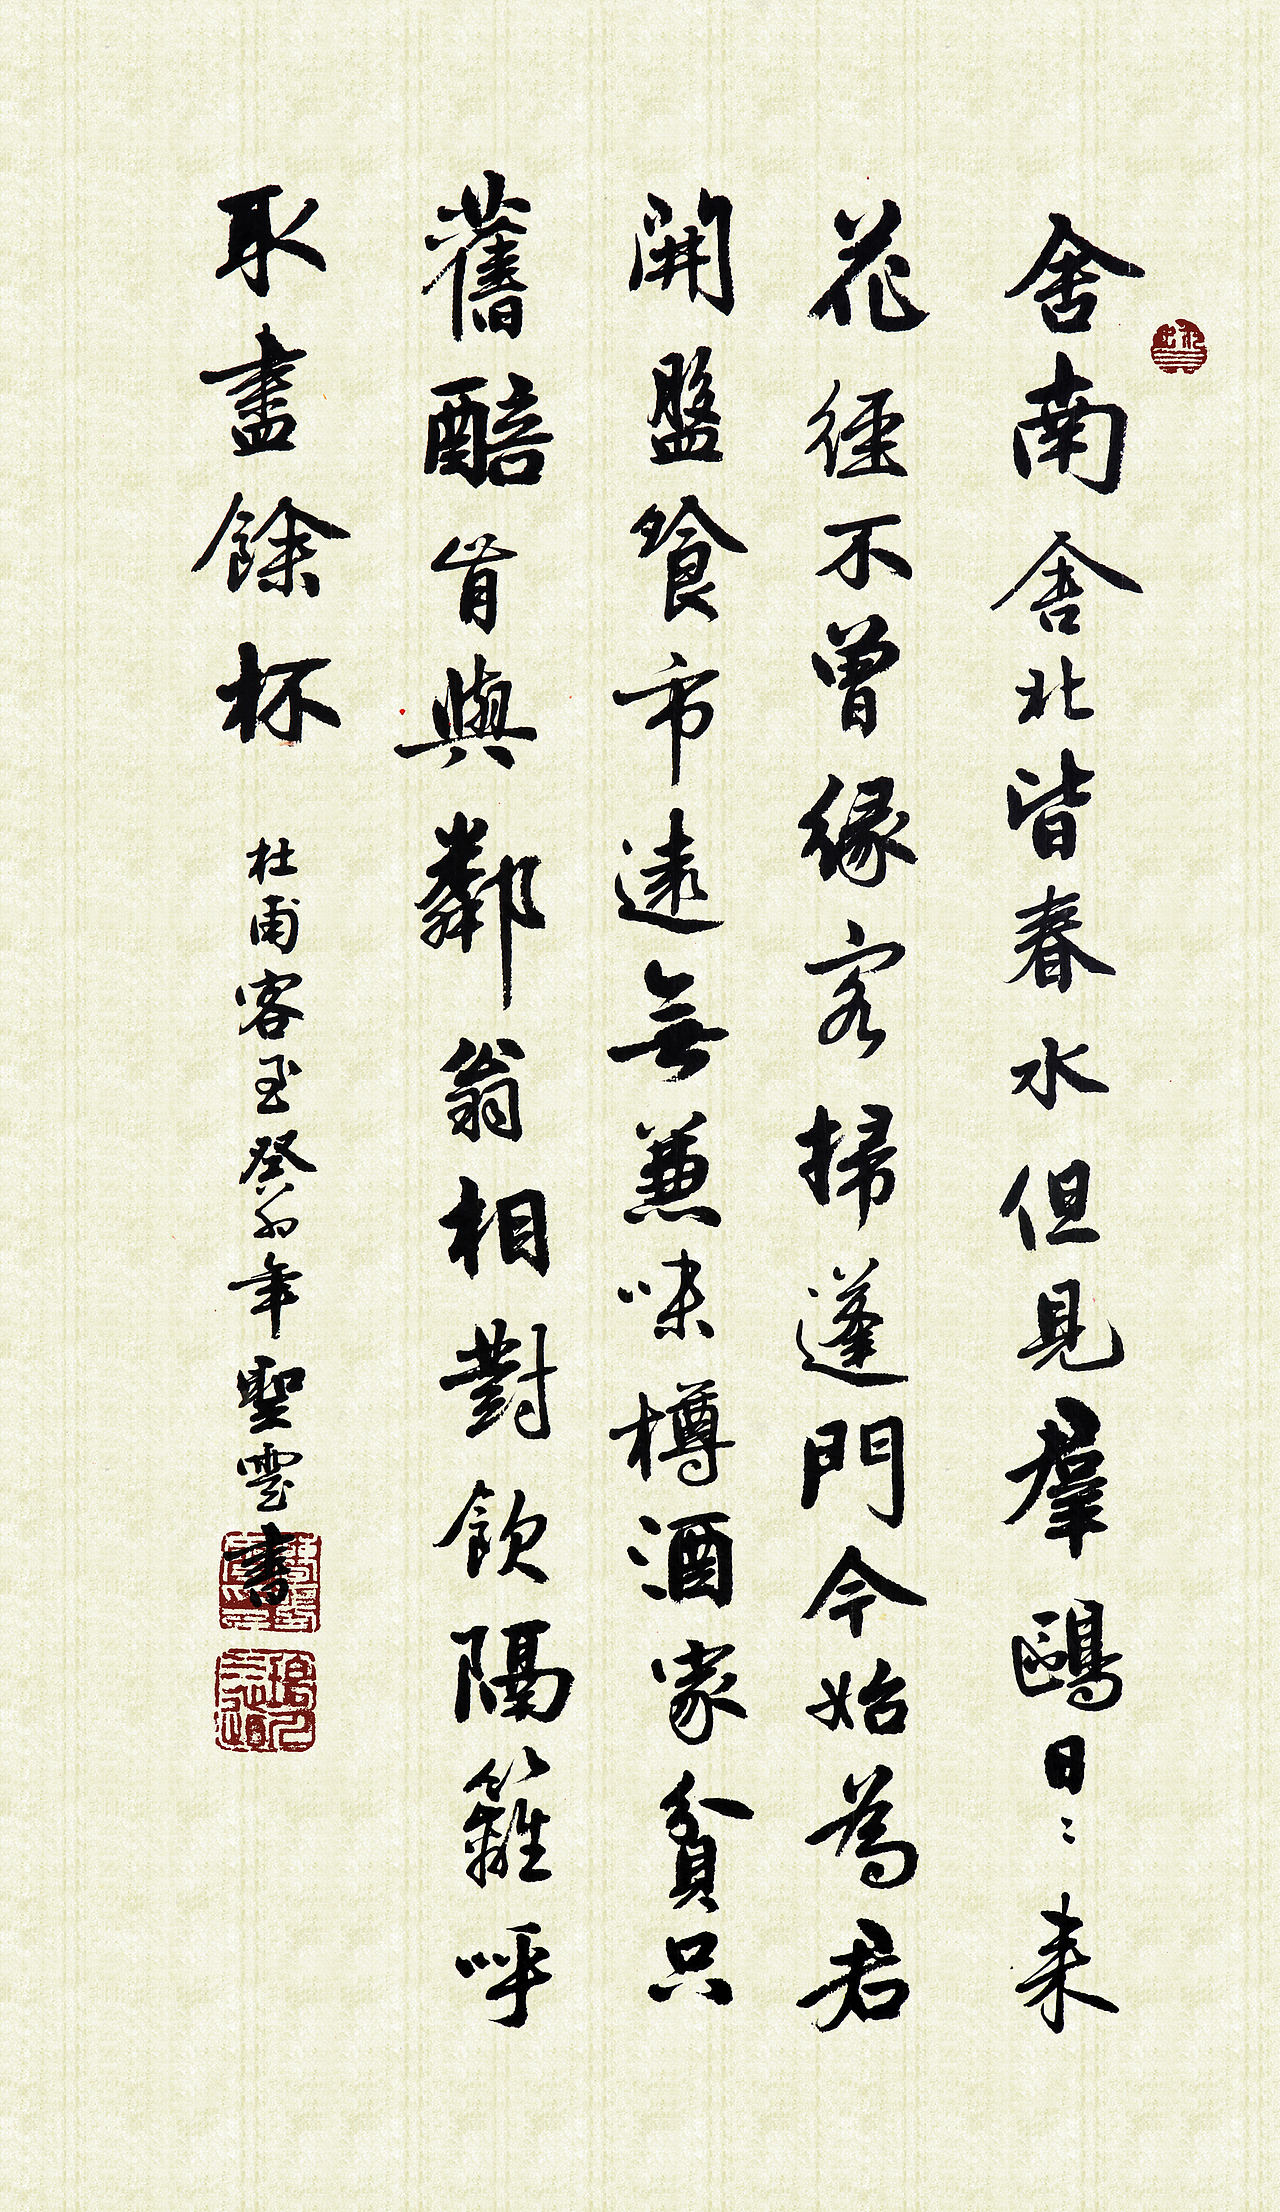 舍南舍北皆春水但見羣鷗日〻来
花徑不曾緣客掃蓬門今始為君
開盤飧市遠無兼味樽酒家貧只
舊醅肯與鄰翁相對飲隔籬呼
取盡餘杯
杜甫客至癸卯年聖雲書